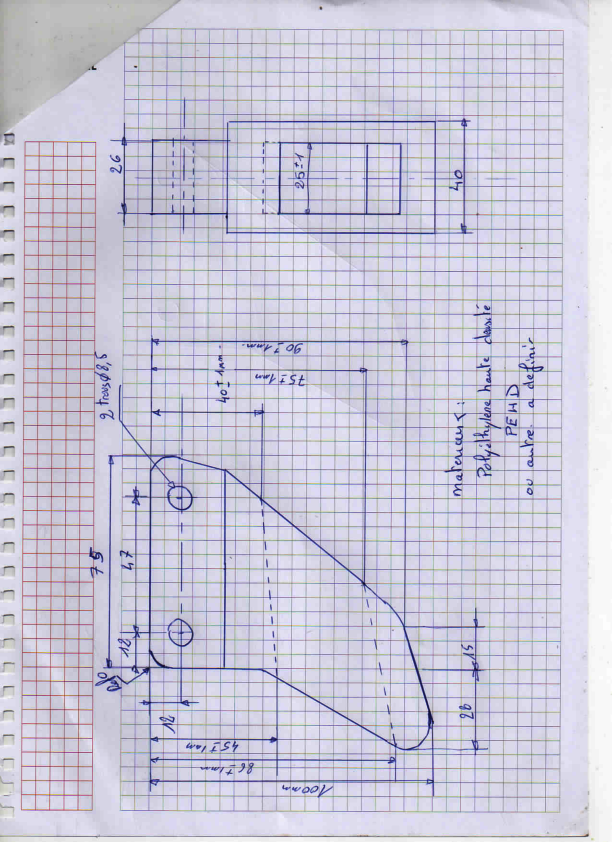 26
25±1
40
2 trous Ø8,5
75
47
12
12
40±1mm
90±1mm
75±1mm
45±1mm
86±1mm
100mm
15
28
materiaux:
Polyéthylene haute densité
PEHD
ou autre a definir